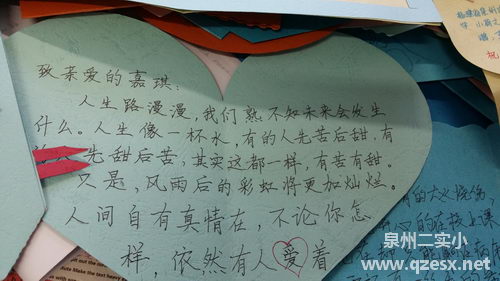 致亲爱的嘉琪:
人生路漫漫,我们熟不知未来会发生
什么。人生像一杯水,有的人先苦后甜,有
人先甜后苦,其实这都一样,有苦有甜。
只是,风雨后的彩虹将更加灿烂。
人间自有真情在,不论你怎
样,依然有人爱着
祝
有的大火烧伤
泉州二实小
www.qzesx.net